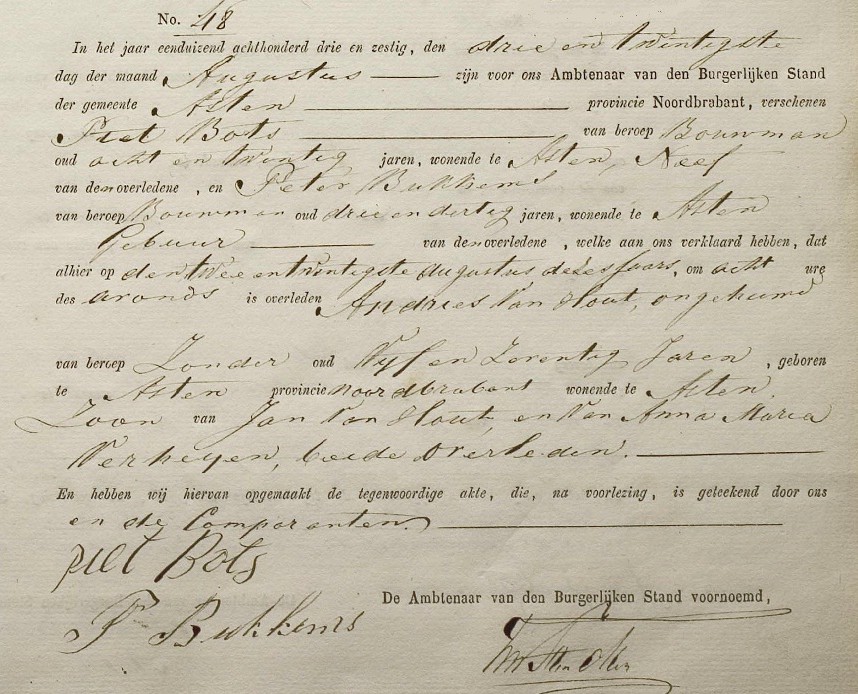 No. 48
In het jaar eenduizend achthonderd drie en zestig, den drie en twintigste
dag der maand Augustus zijn voor ons Ambtenaar van den Burgerlijken Stand
der gemeente Asten provincie Noordbrabant, verschenen
Piet Bots van beroep Bouwman
oud acht en twintig jaren, wonende te Asten, Neef
van den overledene, en Peter Bukkems
van beroep Bouwman oud drie en dertig jaren, wonende te Asten
Gebuur van den overledene, welke aan ons verklaard hebben, dat
alhier op den twee en twintigste augustus dezes jaars, om acht ure
des avonds is overleden Andries Van Hout, ongehuwd
van beroep Zonder oud Vyf en Zeventig Jaren, geboren
te Asten provincie noordbrabant wonende te Asten,
Zoon van Jan Van Hout, en Van Anna Maria
Verheyen, beide overleden.
En hebben wij hiervan opgemaakt de tegenwoordige akte, die, na voorlezing, is geteekend door ons
en de Comparanten.
Piet Bots
De Ambtenaar van den Burgerlijken Stand voornoemd,
P Bukkems